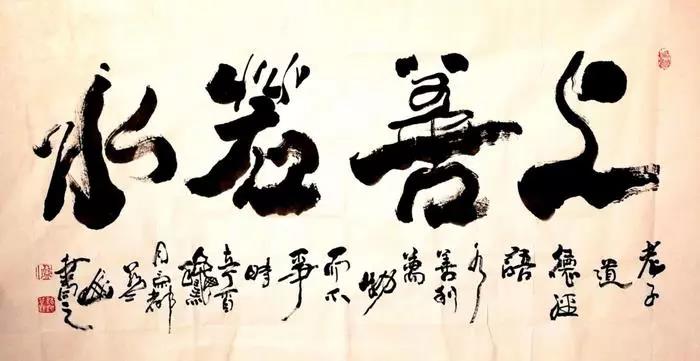 上善若水
老子
道
德經
語
水
善利
萬
物
而不
爭
時
月京都
書之